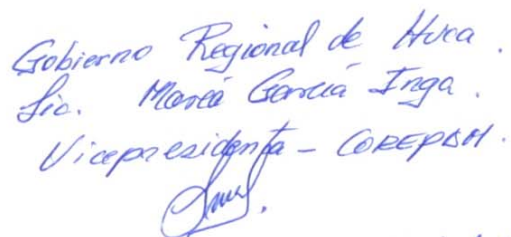 Gobierno Regional de Hvca.
Lic. María García Inga.
Vicepresidenta - COREPDM.